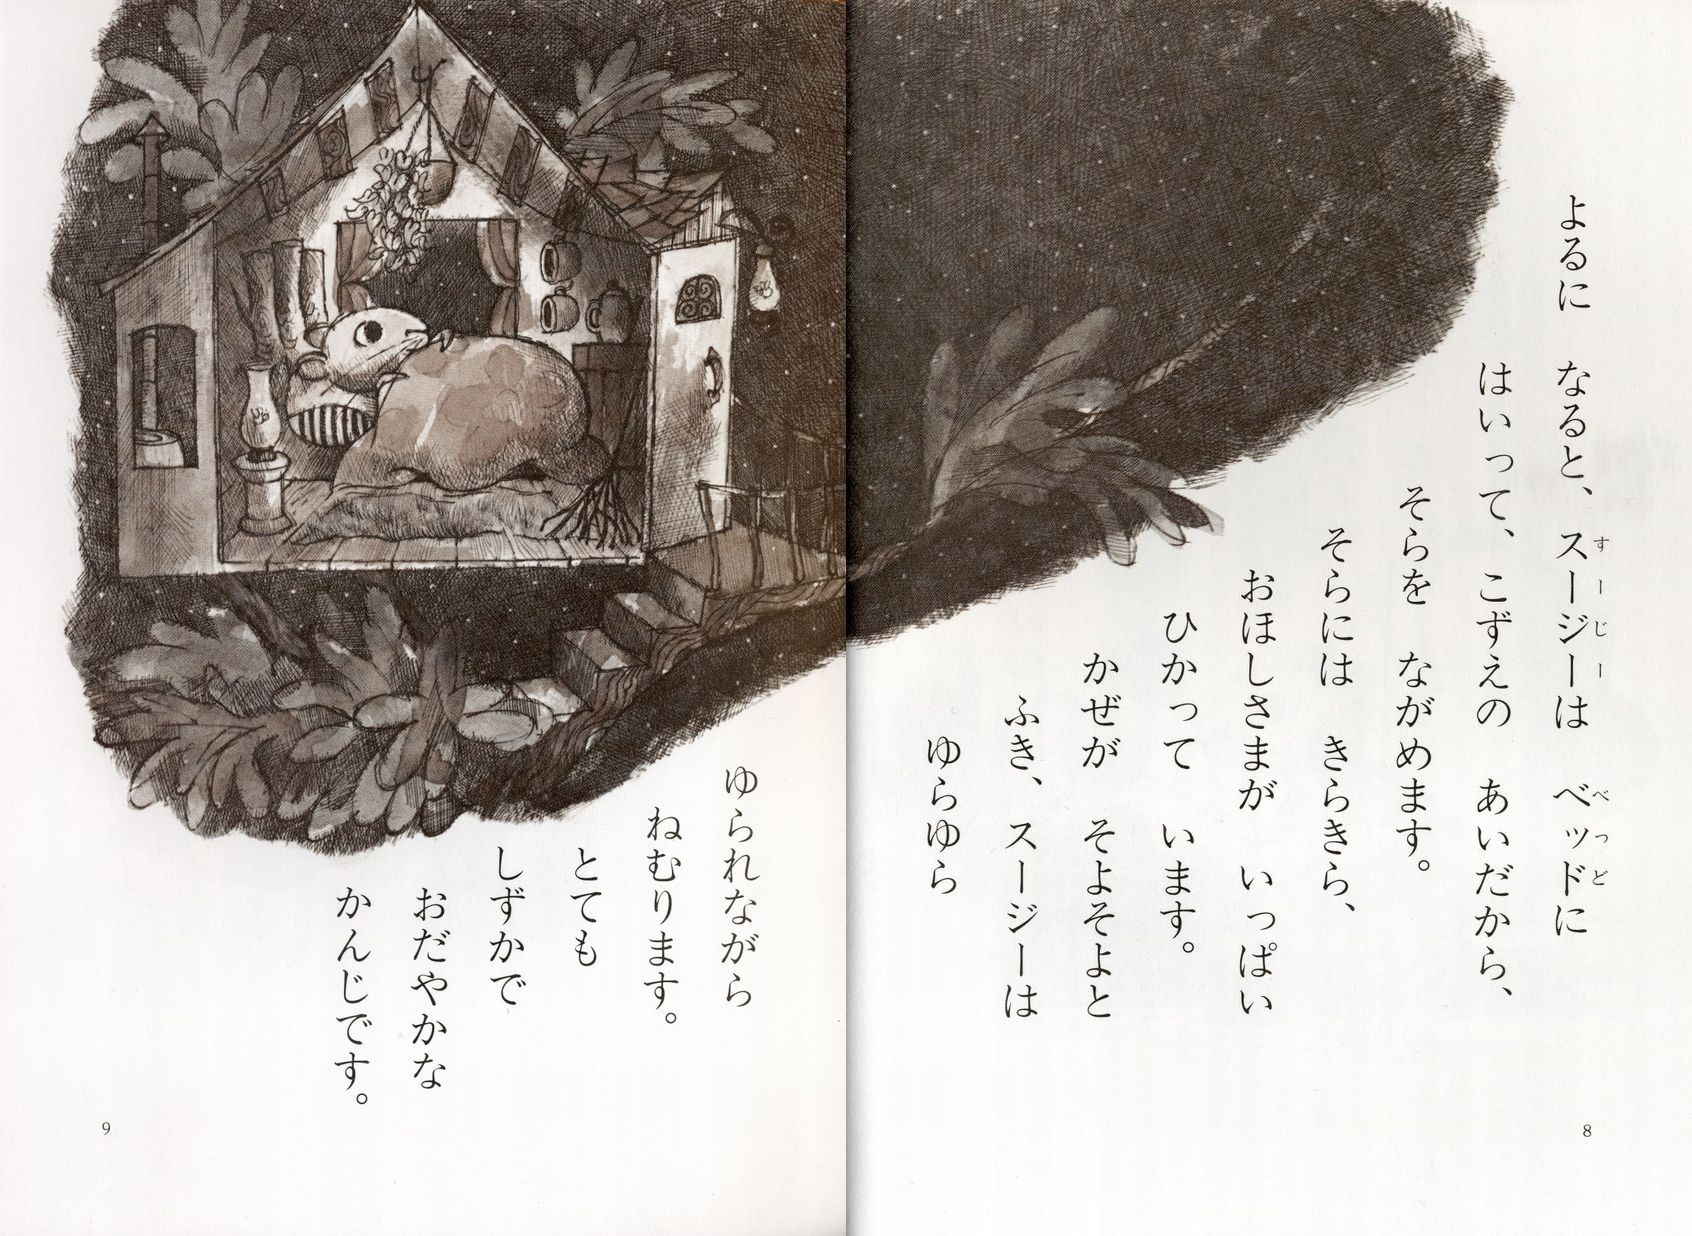 よるに なると、スージーは ベッドに
はいって、こずえの あいだから、
そらを ながめます。
そらには きらきら、
おほしさまが いっぱい
ひかって います。
かぜが そよそよと
ふき、スージーは
ゆらゆら
8
ゆられながら
ねむります。
とても
しずかで
おだやかな
かんじです。
9